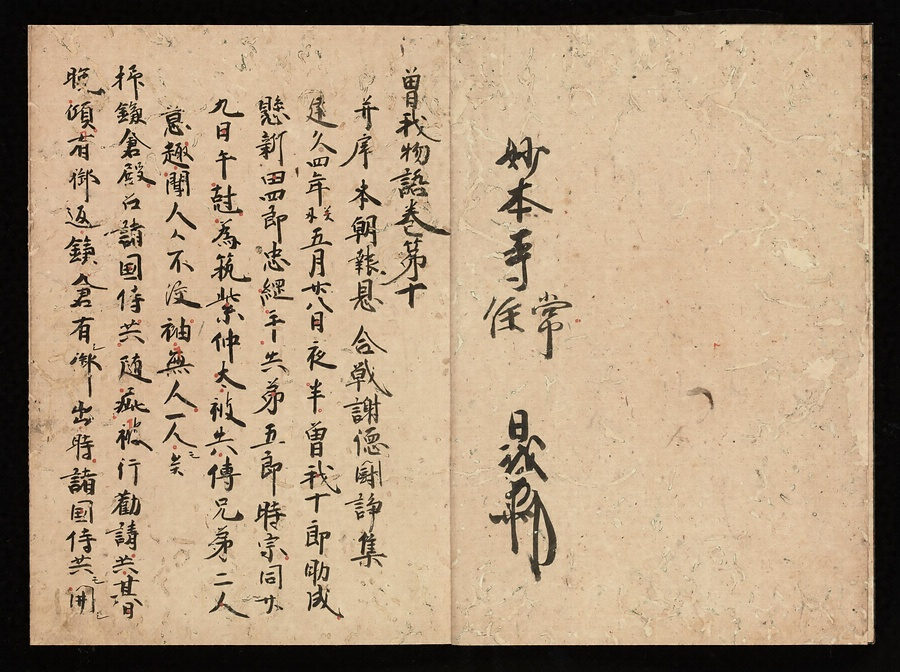 妙本寺
常住
日義
曽我物語巻第十
并序 本朝報恩 合戦謝徳闘諍集
建久四年癸丑五月廿八日夜半曽我十郎助成
懸新田四郎忠經手共弟五郎時宗同廿
九日午尅為筑紫仲太被失傳兄弟二人
意趣聞人々不湿袖無人一人矣
抑鎌倉殿召諸国侍共随疵被行勧請共其日
晩傾有御返鎌倉有御出時諸国侍共開